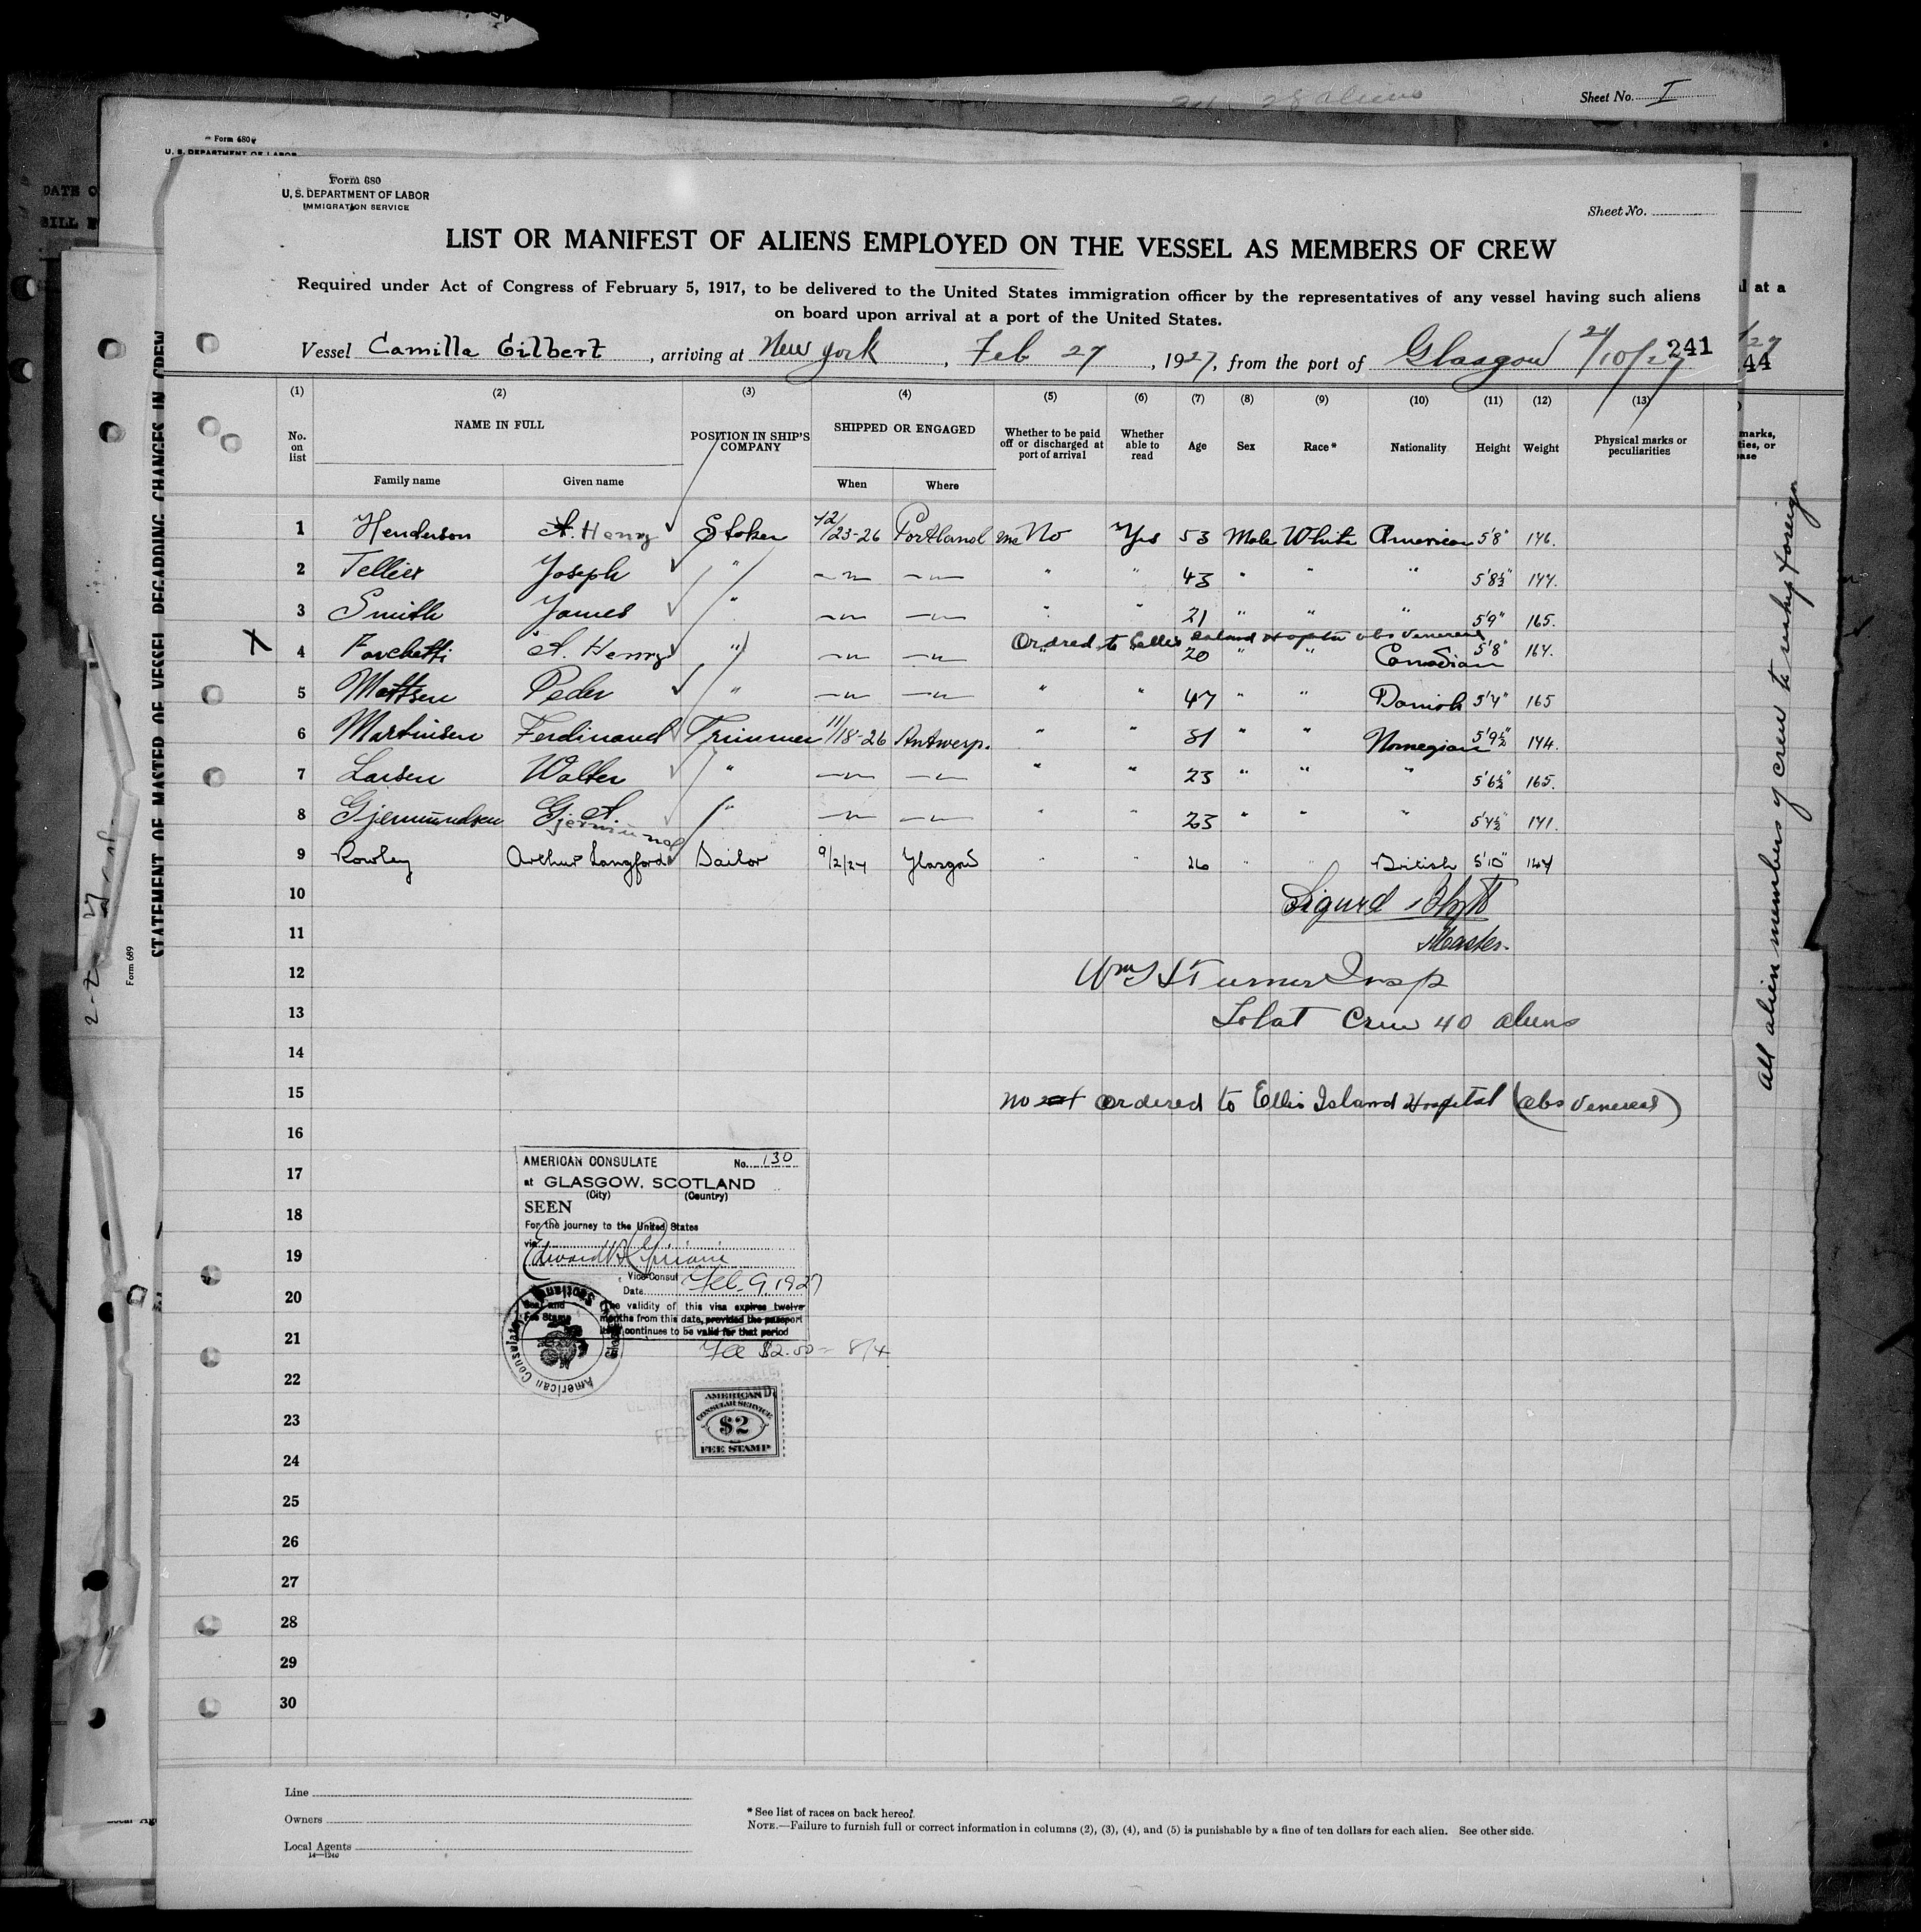 Sheet No. I
28 aliens
Form 680
U. S. DEPARTMENT OF LABOR
DATE O
BILL
Form 680
U. S. DEPARTMENT OF LABOR
IMMIGRATION SERVICE
Sheet No.
LIST OR MANIFEST OF ALIENS EMPLOYED ON THE VESSEL AS MEMBERS OF CREW
Required under Act of Congress of February 5, 1917, to be delivered to the United States immigration officer by the representatives of any vessel having such aliens
on board upon arrival at a port of the United States.
Vessel Camilla Gilbert, arriving at New York, Feb 27, 1927, from the port of Glasgow 2/10/27 241
l at a
44
(1) (2) (3) (4) (5) (6) (7) (8) (9) (10) (11) (12) (13)
No. on list NAME IN FULL POSITION IN SHIP'S COMPANY SHIPPED OR ENGAGED Whether to be paid off or discharged at port of arrival Whether able to read Age Sex Race* Nationality Height Weight Physical marks or peculiarities
Family name Given name When Where
marks,
ties, or
ase
1 Henderson A. Henry Stoker 12/23-26 Portland Me No Yes 53 Male White American 5'8" 146.
2 Tellier Joseph " —"— —"— " " 43 " " " 5'8½" 144.
3 Smith James " —"— —"— " " 21 " " " 5'9" 165.
Ordred to Ellis Island Hospital obs Venereal
X 4 Forchetti A. Henry " —"— —"— " " 20 " " Canadian 5'8" 164.
5 Mattsen Peder " —"— —"— " " 47 " " Danish 5'4" 165
6 Martinsen Ferdinand Trimmer 11/18-26 Antwerp. " " 31 " " Norwegian 5'9½" 144.
7 Larsen Walter " —"— —"— " " 23 " " " 5'6½" 165.
8 Gjermundsen G. A. Gjermund " —"— —"— " " 23 " " " 5'4½" 141.
9 Rowley Arthur Langford Sailor 9/2/27 Glasgow " " 26 " " British 5'10" 164
10 Sigurd
11 Master.
12 Wm H Turner Insp
13 Total Crew 40 aliens
14
15 no 4 ordered to Ellis Island Hospital (obs Venereal)
16
17
18
19
20
21
22
23
24
25
26
27
28
29
30
AMERICAN CONSULATE No. 130
at GLASGOW, SCOTLAND
(City) (Country)
SEEN
For the journey to the United States
via
Edward
Vice Consul
Date Feb. 9, 1927
Seal and Fee Stamp
The validity of this visa expires twelve
months from this date, provided the passport
continues to be valid for that period
American Consulate Glasgow, Scotland
Fee $2.00 = 8/4
AMERICAN
CONSULAR SERVICE
$2
FEE STAMP
FEB
Line
Owners
Local Agents
14—1240
* See list of races on back hereof.
NOTE.—Failure to furnish full or correct information in columns (2), (3), (4), and (5) is punishable by a fine of ten dollars for each alien. See other side.
STATEMENT OF MASTER OF VESSEL REGARDING CHANGES IN CREW
Form 689
All alien members of crew to reship foreign